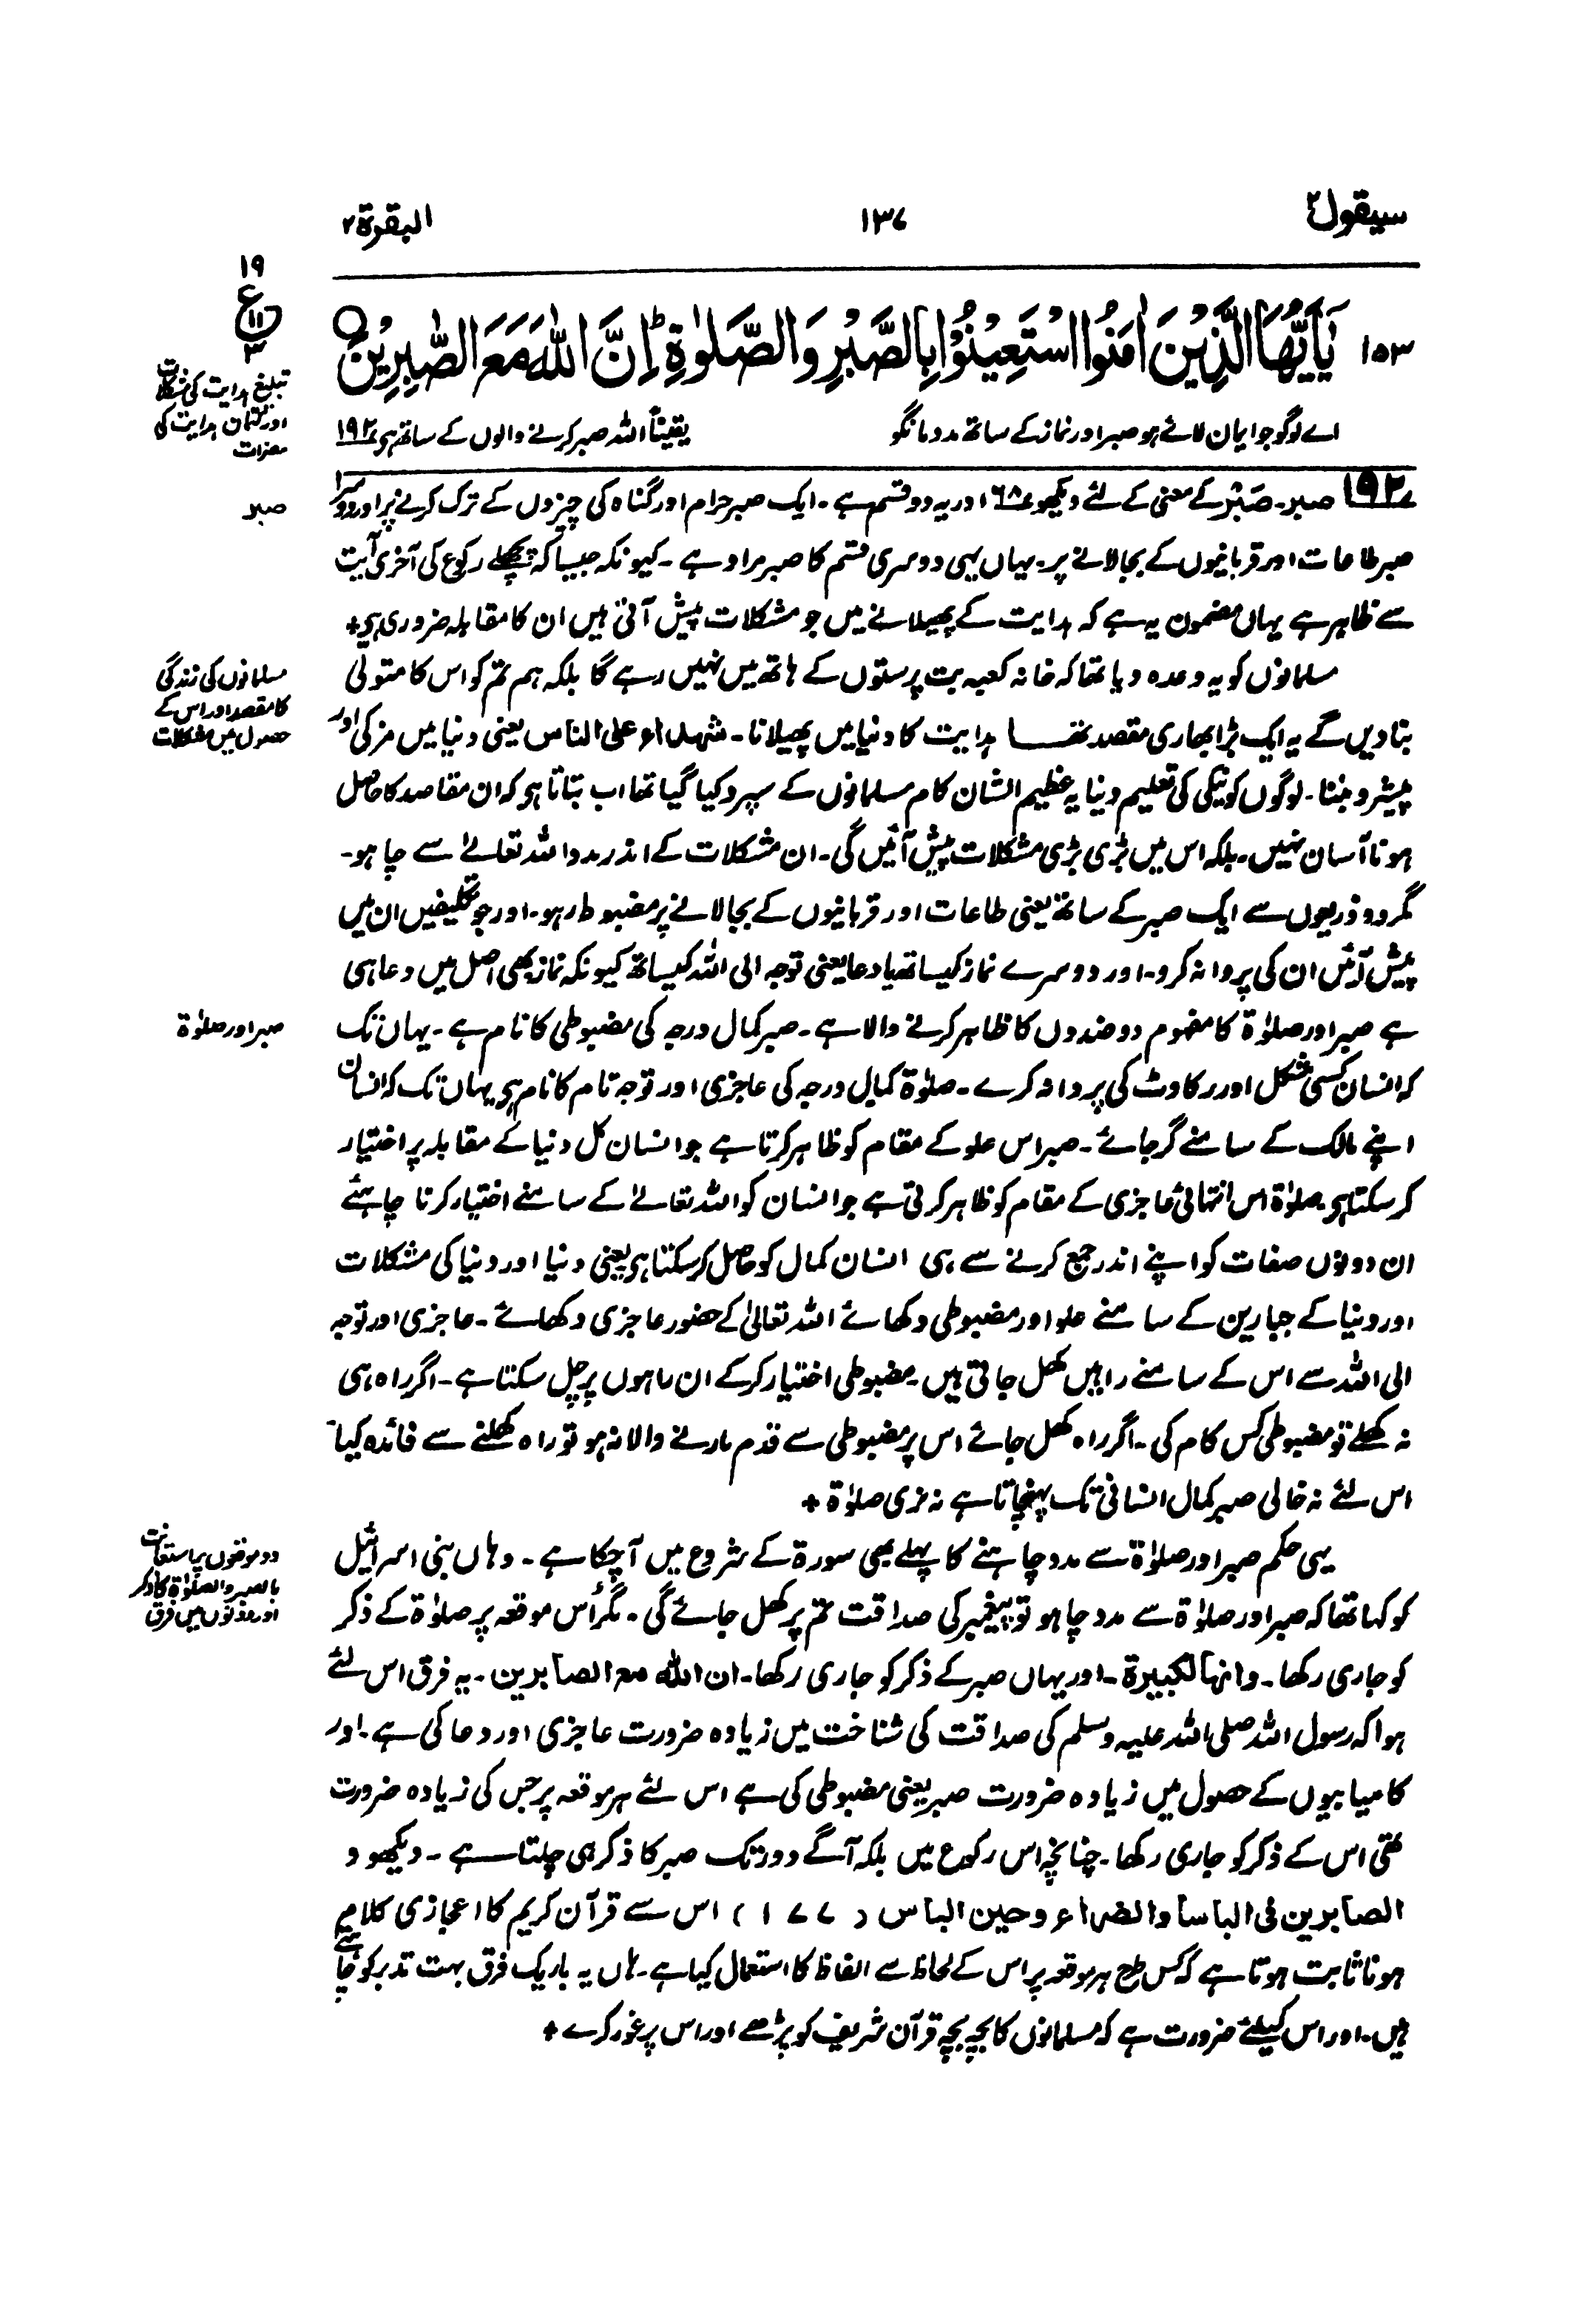 سیقول ۲
۱۳۷
البقرة ۲
۱۵۳ یٰۤاَیُّهَا الَّذِیْنَ اٰمَنُوا اسْتَعِیْنُوْا بِالصَّبْرِ وَالصَّلٰوةِ ؕ اِنَّ اللّٰهَ مَعَ الصّٰبِرِیْنَ ○
اے لوگو جو ایمان لائے ہو صبر اور نماز کے ساتھ مدد مانگو یقیناً اللہ صبر کرنے والوں کے ساتھ ہو ۱۹۲
۱۹ ع ۱۱ ۳
تبلیغ ہدایت کی مشکلات
اور کتمان ہدایت کی
مضرات
۱۹۲ صبر۔ صَبْرٌ کے معنی کے لئے دیکھو ۶۸ اور یہ دو قسم ہے۔ ایک صبر حرام اور گناہ کی چیزوں کے ترک کرنے پر اور دوسرا
صبر
صبر طاعات اور قربانیوں کے بجالانے پر۔ یہاں یہی دوسری قسم کا صبر مراد ہے۔ کیونکہ جیسا کہ پچھلے رکوع کی آخری آیت
سے ظاہر ہے یہاں مضمون یہ ہے کہ ہدایت کے پھیلانے میں جو مشکلات پیش آتی ہیں ان کا مقابلہ ضروری ہو+
مسلمانوں کو یہ وعدہ دیا تھا کہ خانہ کعبہ بت پرستوں کے ہاتھ میں نہیں رہے گا بلکہ ہم تم کو اس کا متولی
مسلمانوں کی زندگی
کا مقصد اور اس کے
حصول میں مشکلات
بنا دیں گے یہ ایک بڑا بھاری مقصد تھا ہدایت کا دنیا میں پھیلانا۔ شہداء علی الناس یعنی دنیا میں مزکی اور
پیشرو بننا۔ لوگوں کو نیکی کی تعلیم دینا یہ عظیم الشان کام مسلمانوں کے سپرد کیا گیا تھا اب بتاتا ہو کہ ان مقاصد کا حاصل
ہونا آسان نہیں۔ بلکہ اس میں بڑی بڑی مشکلات پیش آئیں گی۔ ان مشکلات کے اندر مدد اللہ تعالےٰ سے چاہو۔
مگر دو ذریعوں سے ایک صبر کے ساتھ یعنی طاعات اور قربانیوں کے بجالانے پر مضبوط رہو۔ اور جو تکلیفیں ان میں
پیش آئیں ان کی پروا نہ کرو۔ اور دوسرے نماز کیساتھ یا دعا یعنی توجہ الی اللہ کیساتھ کیونکہ نماز بھی اصل میں دعا ہی
ہے صبر اور صلوٰۃ کا مفہوم دو ضدوں کا ظاہر کرنے والا ہے۔ صبر کمال درجہ کی مضبوطی کا نام ہے۔ یہاں تک
صبر اور صلوٰۃ
کہ انسان کسی مشکل اور رکاوٹ کی پروا نہ کرے۔ صلوٰۃ کمال درجہ کی عاجزی اور توجہ تام کا نام ہو یہاں تک کہ انسان
اپنے مالک کے سامنے گر جائے۔ صبر اس علو کے مقام کو ظاہر کرتا ہے جو انسان کل دنیا کے مقابلہ پر اختیار
کر سکتا ہو۔ صلوٰۃ اس انتہائی عاجزی کے مقام کو ظاہر کرتی ہے جو انسان کو اللہ تعالےٰ کے سامنے اختیار کرنا چاہئے
ان دونوں صفات کو اپنے اندر جمع کرنے سے ہی انسان کمال کو حاصل کر سکتا ہو یعنی دنیا اور دنیا کی مشکلات
اور دنیا کے جبارین کے سامنے علو اور مضبوطی دکھائے اللہ تعالیٰ کے حضور عاجزی دکھائے۔ عاجزی اور توجہ
الی اللہ سے اس کے سامنے راہیں کھل جاتی ہیں۔ مضبوطی اختیار کر کے ان راہوں پر چل سکتا ہے۔ اگر راہ ہی
نہ کھلے تو مضبوطی کس کام کی۔ اگر راہ کھل جائے اس پر مضبوطی سے قدم مارنے والا نہ ہو تو راہ کھلنے سے فائدہ کیا
اس لئے نہ خالی صبر کمال انسانی تک پہنچاتا ہے نہ نری صلوٰۃ +
یہی حکم صبر اور صلوٰۃ سے مدد چاہنے کا پہلے بھی سورۃ کے شروع میں آچکا ہے۔ وہاں بنی اسرائیل
دو موقعوں پر استعانت
بالصبر والصلوٰۃ کا ذکر
اور دونوں میں فرق
کو کہا تھا کہ صبر اور صلوٰۃ سے مدد چاہو تو پیغمبر کی صداقت تم پر کھل جائے گی۔ مگر اُس موقعہ پر صلوٰۃ کے ذکر
کو جاری رکھا۔ وانہا لکبیرۃ۔ اور یہاں صبر کے ذکر کو جاری رکھا۔ ان اللہ مع الصابرین۔ یہ فرق اس لئے
ہوا کہ رسول اللہ صلی اللہ علیہ وسلم کی صداقت کی شناخت میں زیادہ ضرورت عاجزی اور دعا کی ہے۔ اور
کامیابیوں کے حصول میں زیادہ ضرورت صبر یعنی مضبوطی کی ہے اس لئے ہر موقعہ پر جس کی زیادہ ضرورت
تھی اس کے ذکر کو جاری رکھا۔ چنانچہ اس رکوع میں بلکہ آگے دور تک صبر کا ذکر ہی چلتا ہے۔ دیکھو و
الصابرین فی الباسا والضراء وحین الباس (۱۷۷) اس سے قرآن کریم کا اعجازی کلام
ہونا ثابت ہوتا ہے کہ کس طرح ہر موقعہ پر اس کے لحاظ سے الفاظ کا استعمال کیا ہے۔ ہاں یہ باریک فرق بہت تدبر کو چاہتے
ہیں۔ اور اس کیلئے ضرورت ہے کہ مسلمانوں کا بچہ بچہ قرآن شریف کو پڑھے اور اس پر غور کرے +